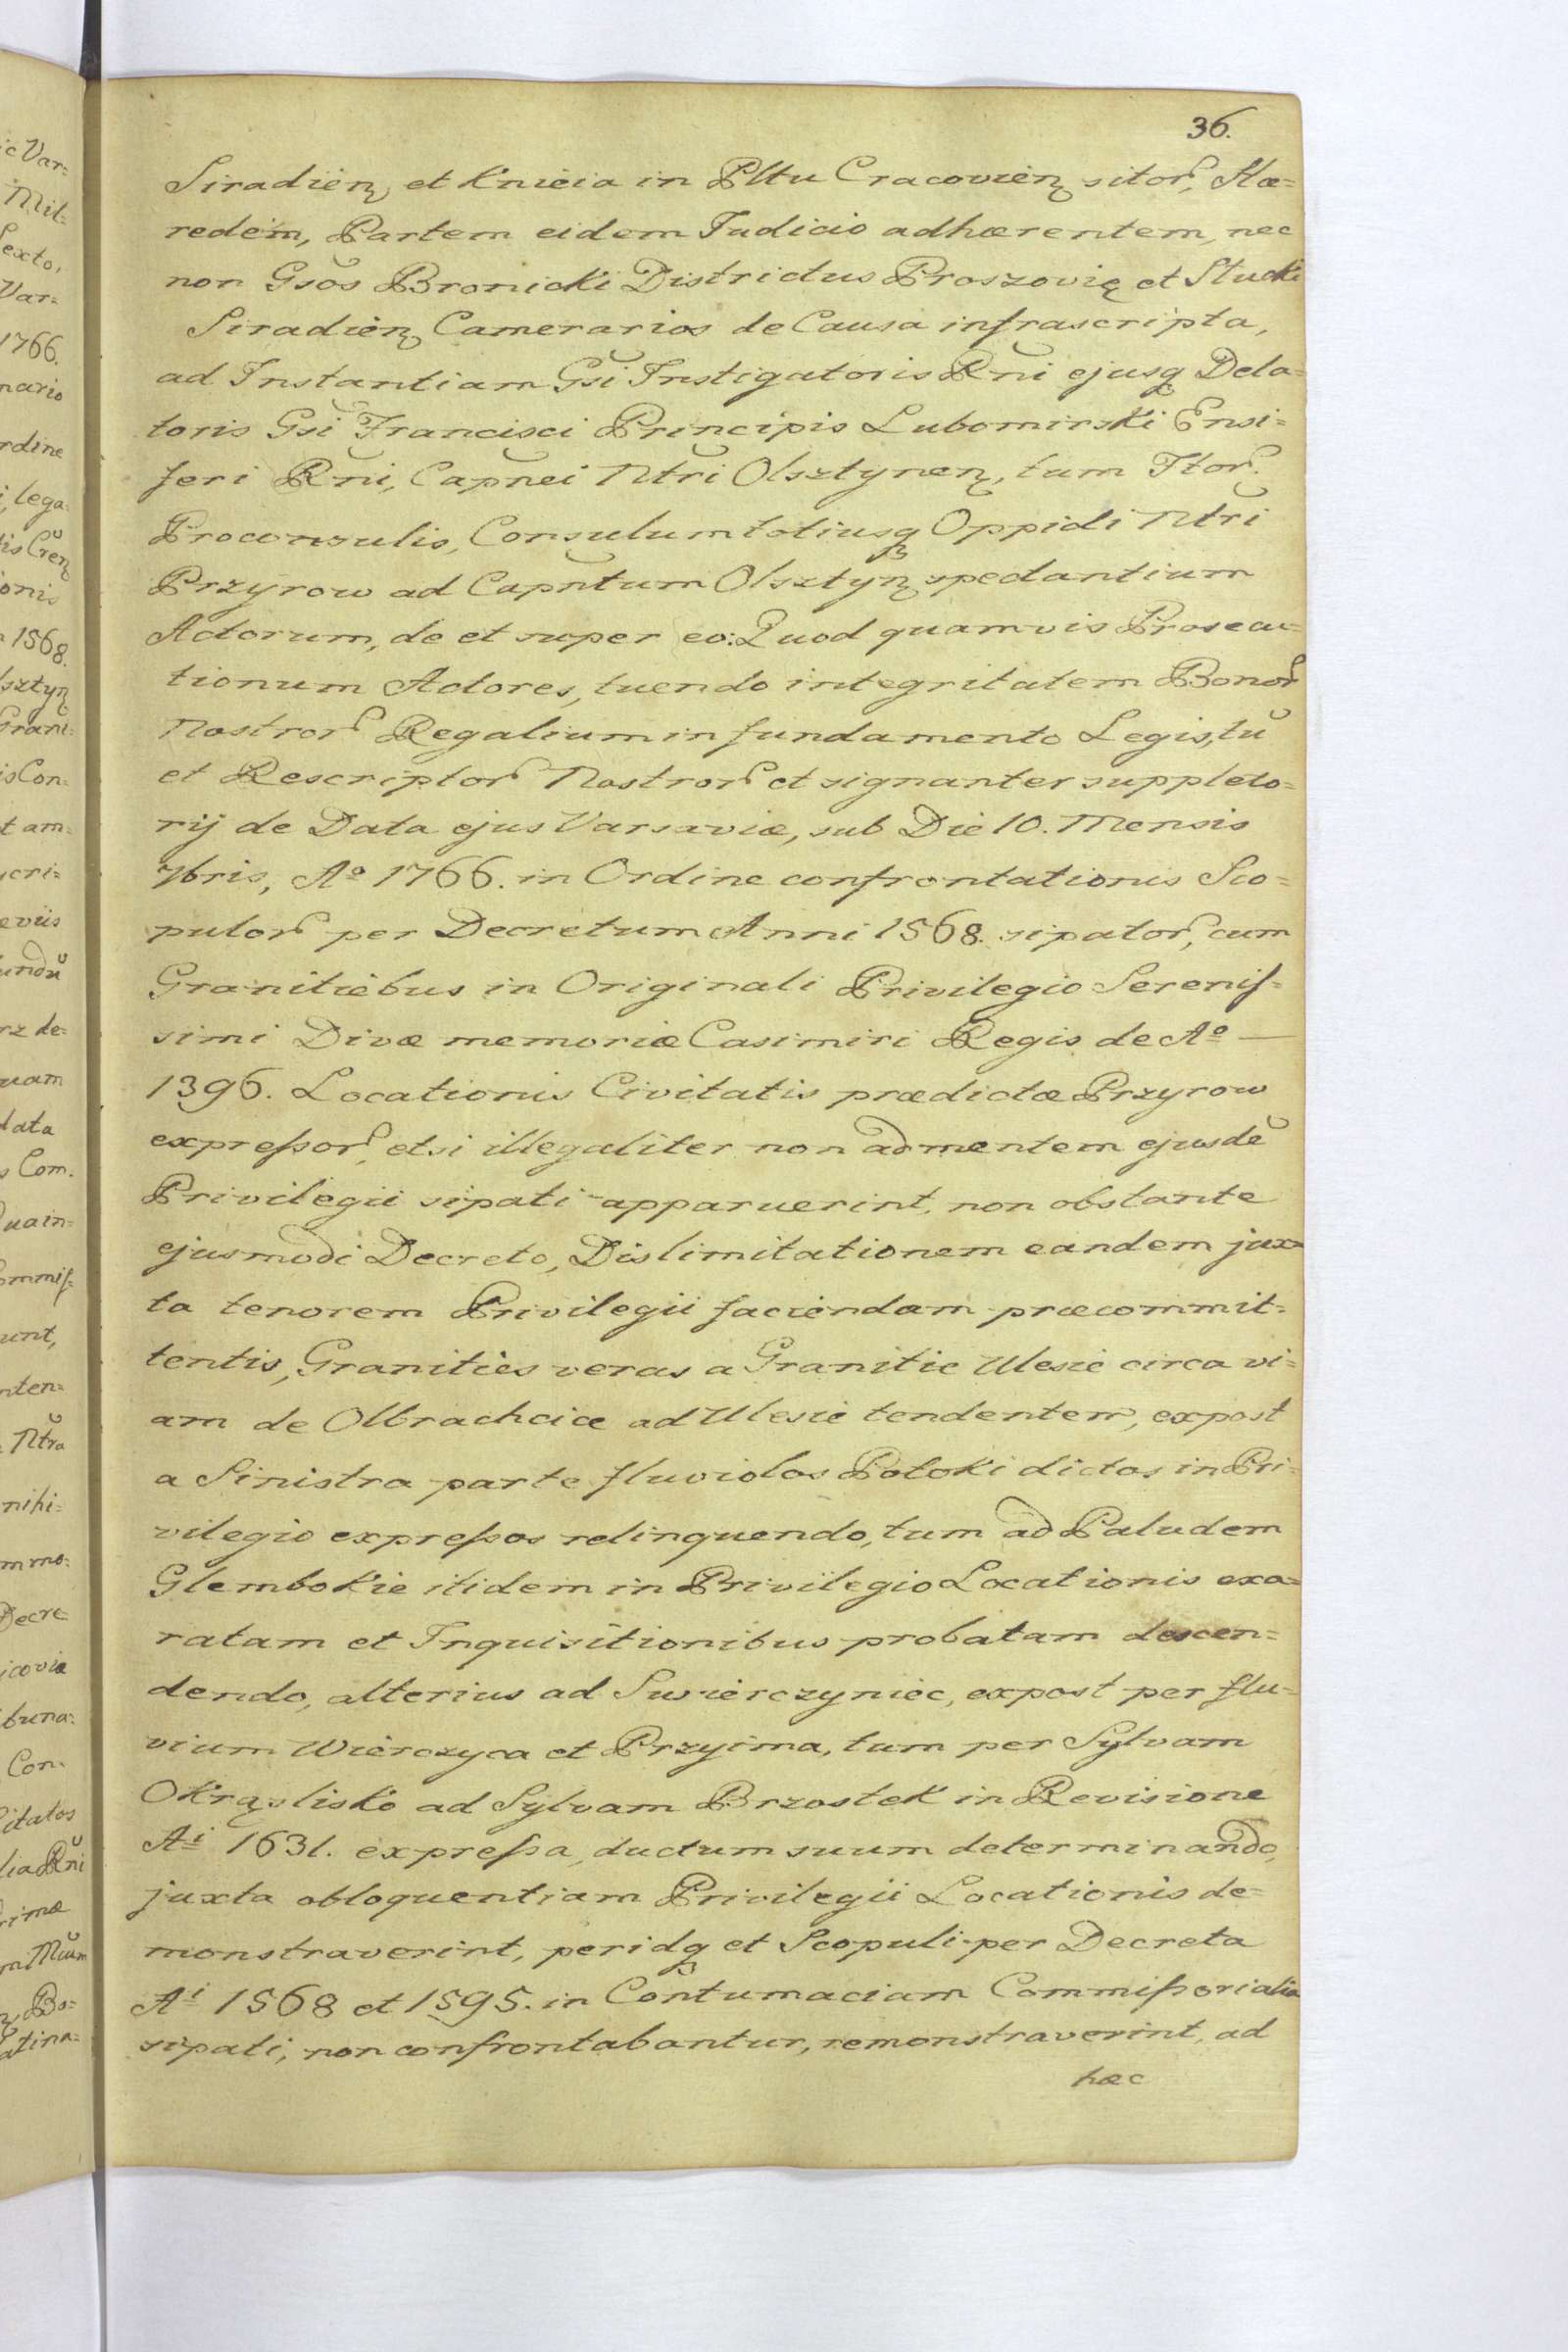 36.
Siradien, et Knieia in Pltu Cracovien, sitor, Hæ=
redem, Partem eidem Judicio adhærentem, nec
non Gsos Bronicki Districtus Proszovię et Stucki
Siradien, Camerarios de Causa infrascripta,
ad Instantiam Gsi Instigatoris Rni ejusq Dela=
toris Gsi Francisci Principis Lubomirski Ensi=
feri Rni, Capnei Ntri Olsztynen, tum Ftor.
Proconsulis, Consulum totiusq Oppidi Ntri
Przyrow ad Capntum Olsztyn spectantium
Actorum, de et super eo: Quod quamvis Prosecu=
tionum Actores, tuendo integritatem Bonor
Nostror Regalium in fundamento Legis, tũ
et Rescriptor Nostror et signanter suppleto=
rij de Data ejus Varsaviæ, sub Die 10. Mensis
7bris, Aº 1766. in Ordine confrontationis Sco=
pulor per Decretum Anni 1568. sipator, cum
Granitiebus in Originali Privilegio Serenis=
simi Divæ memoriæ Casimiri Regis de Aº —
1396. Locationis Civitatis prædictæ Przyrow
expressor, etsi illegaliter non ad mentem ejusdẽ
Privilegii sipati apparuerint, non obstante
ejusmodi Decreto, Dislimitationem eandem jux=
ta tenorem Privilegii faciendam præcommit=
tentis, Granities veras a Granitie Ulesie circa vi=
am de Olbrachcice ad Ulesie tendentem, expost
a Sinistra parte fluviolos Potoki dictos in Pri=
vilegio expressos relinquendo, tum ad Paludem
Glembokie itidem in Privilegio Locationis exa=
ratam et Inquisitionibus probatam descen=
dendo, alterius ad Swierczyniec, expost per flu=
vium Wierczyca et Przyima, tum per Sylvam
Okrąslisko ad Sylvam Brzostek in Revisione
Ai 1631. expressa, ductum suum determinando,
juxta obloquentiam Privilegii Locationis de=
monstraverint, peridq et Scopuli per Decreta
Ai 1568 et 1595. in Contumaciam Commissorialia
sipati, non confrontabantur, remonstraverint, ad
hæc